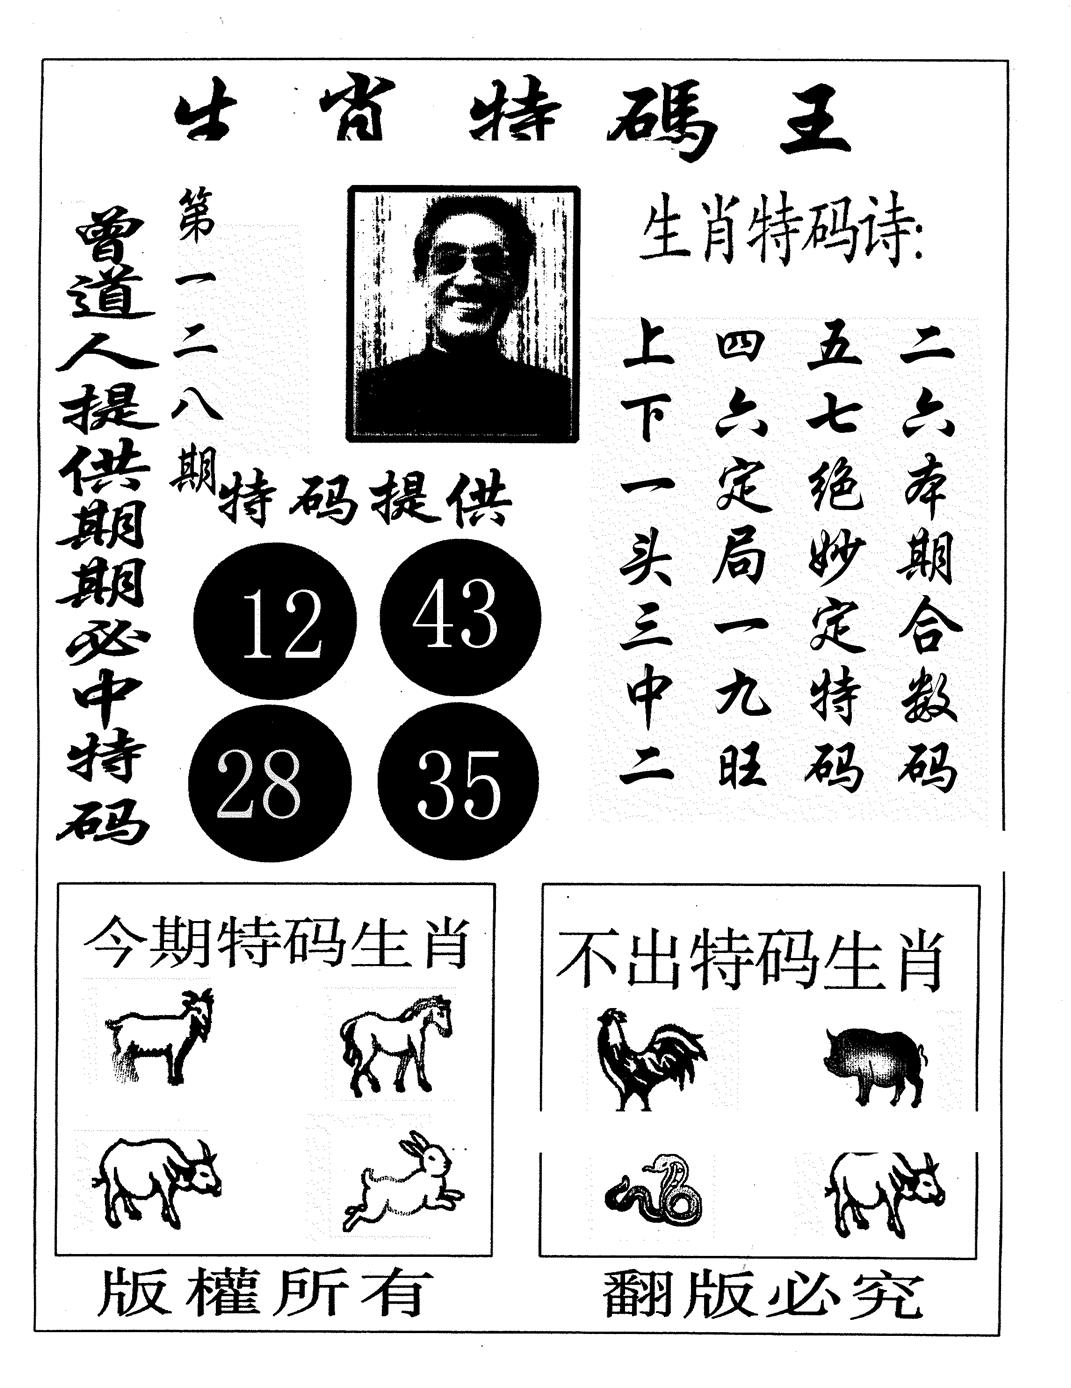 生肖特碼王
曾道人提供期期必中特码
第一二八期
特码提供
12 43
28 35
生肖特码诗:
二六本期合数码
五七绝妙定特码
四六定局一九旺
上下一头三中二
今期特码生肖
不出特码生肖
版權所有
翻版必究